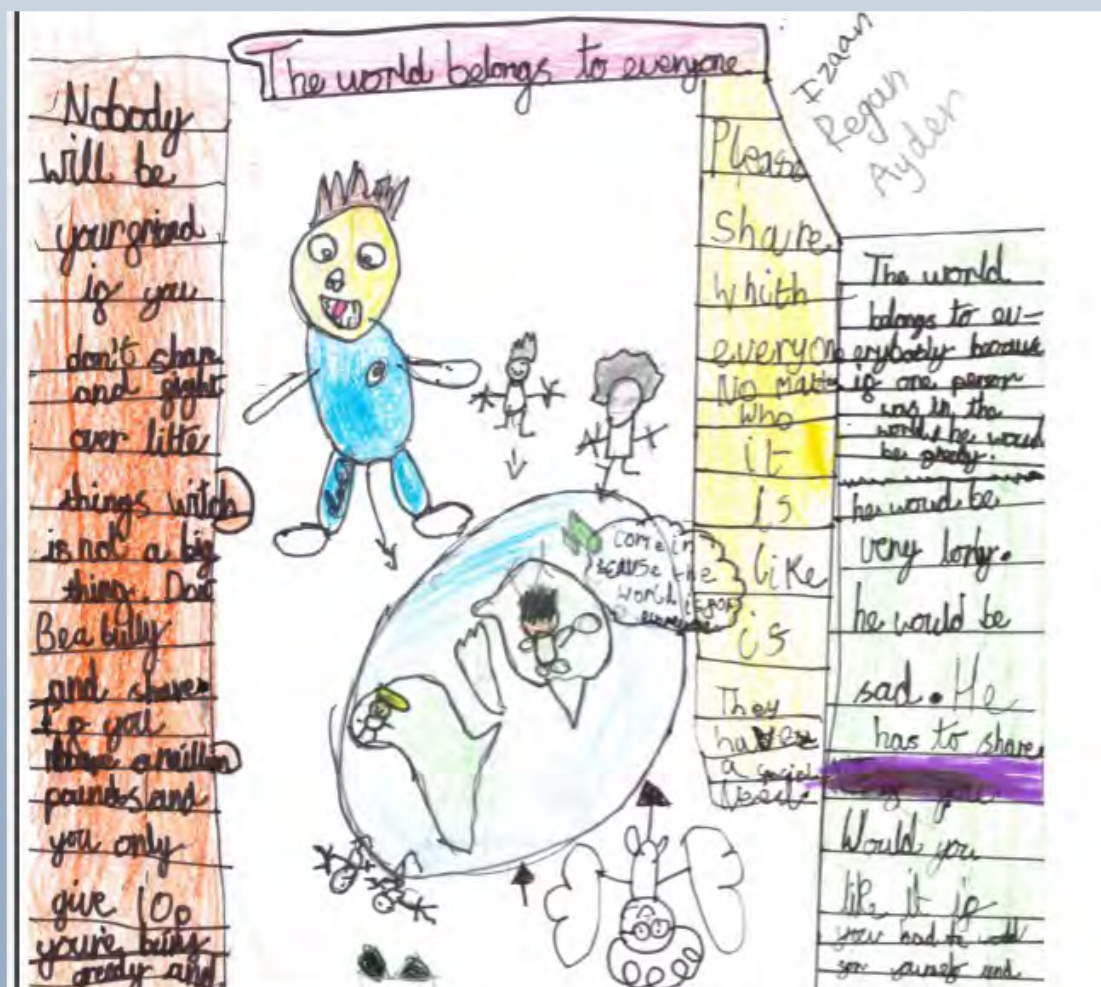 The world belongs to everyone
Izaan
Regan
Ayden
Nobody
will be
your friend
if you
don't share
and fight
over little
things witch
is not a big
thing. Don't
Be a bully
and share.
If you
have a million
pounds and
you only
give 10p
you're being
greedy and
Please
Share
whith
everyone
No Matter
who
it
is
like
is
They
have
a special
need.
come in
because the
world is for
everyone
The world
belongs to ev-
erybody because
if one person
was in the
world he would
be greedy.
he would be
very lonly.
he would be
sad. He
has to share
you
Would you
like it if
you had to
and